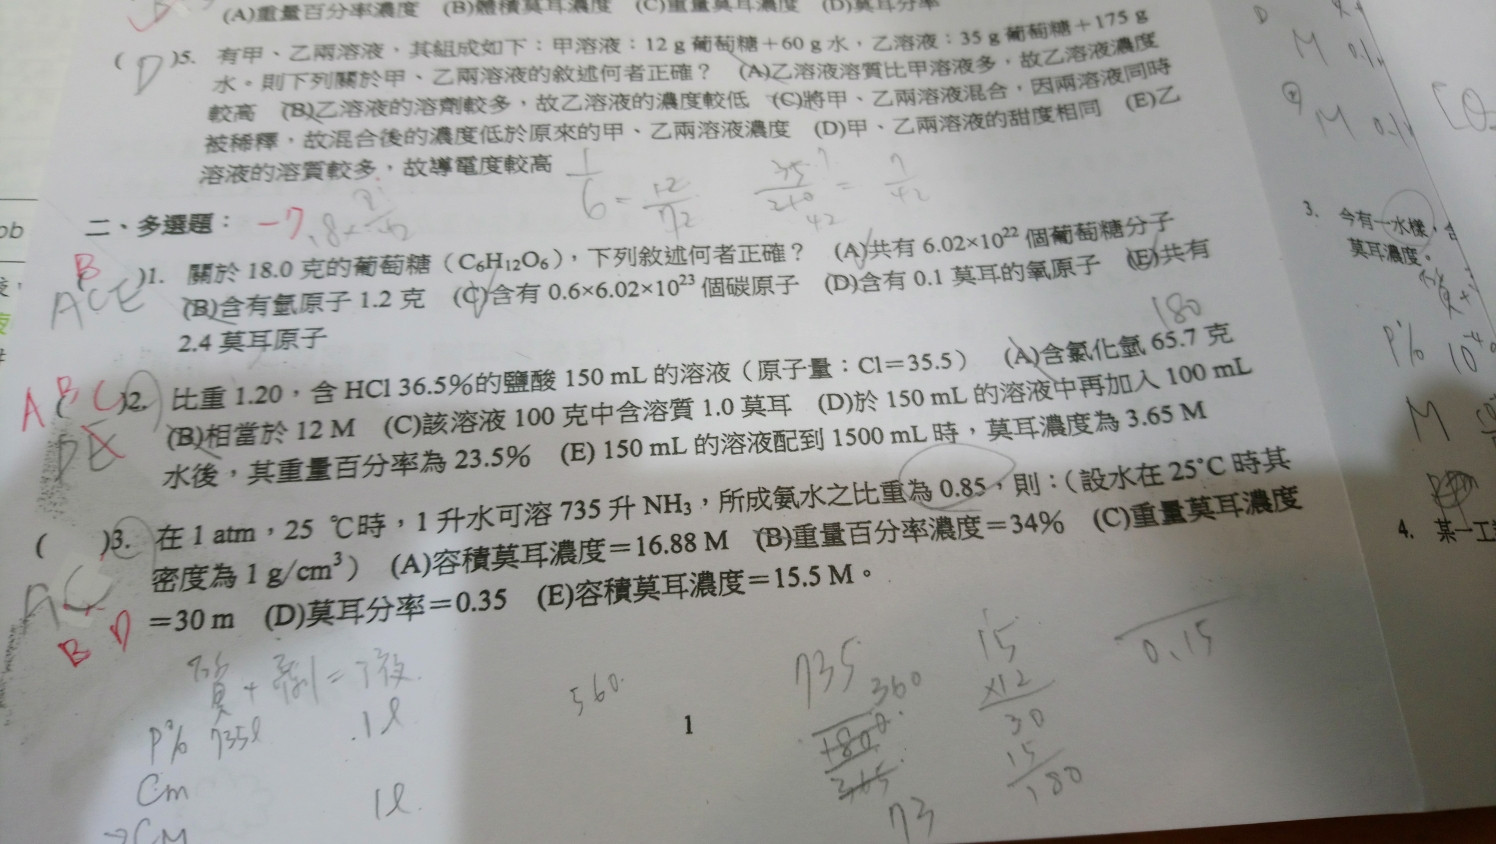 (A)重量百分率濃度 (B)體積莫耳濃度 (C)重量莫耳濃度 (D)莫耳分率
( D )5. 有甲、乙兩溶液，其組成如下：甲溶液：12 g 葡萄糖＋60 g 水，乙溶液：35 g 葡萄糖＋175 g
水。則下列關於甲、乙兩溶液的敘述何者正確？ (A)乙溶液溶質比甲溶液多，故乙溶液濃度
較高 (B)乙溶液的溶劑較多，故乙溶液的濃度較低 (C)將甲、乙兩溶液混合，因兩溶液同時
被稀釋，故混合後的濃度低於原來的甲、乙兩溶液濃度 (D)甲、乙兩溶液的甜度相同 (E)乙
溶液的溶質較多，故導電度較高
1/6 = 12/72
35/210 = 7/42
二、多選題： -7
B
ACE
)1. 關於 18.0 克的葡萄糖（C₆H₁₂O₆），下列敘述何者正確？ (A)共有 6.02×10²² 個葡萄糖分子
(B)含有氫原子 1.2 克 (C)含有 0.6×6.02×10²³ 個碳原子 (D)含有 0.1 莫耳的氧原子 (E)共有
2.4 莫耳原子
180
A B C
DE
)2. 比重 1.20，含 HCl 36.5%的鹽酸 150 mL 的溶液（原子量：Cl＝35.5） (A)含氯化氫 65.7 克
(B)相當於 12 M (C)該溶液 100 克中含溶質 1.0 莫耳 (D)於 150 mL 的溶液中再加入 100 mL
水後，其重量百分率為 23.5% (E) 150 mL 的溶液配到 1500 mL 時，莫耳濃度為 3.65 M
( )3. 在 1 atm，25 ℃時，1 升水可溶 735 升 NH₃，所成氨水之比重為 0.85，則：（設水在 25℃ 時其
密度為 1 g/cm³） (A)容積莫耳濃度＝16.88 M (B)重量百分率濃度＝34% (C)重量莫耳濃度
＝30 m (D)莫耳分率＝0.35 (E)容積莫耳濃度＝15.5 M。
AC
B D
質 + 劑 = 液
P% 735l 1l
Cm
1l
CM
560
735
360
73
15
×12
30
15
180
0.15
1
D
M 0.1
M 0.1
3. 今有一水樣，
莫耳濃度。
P% 10⁻⁴
M
4. 某一工